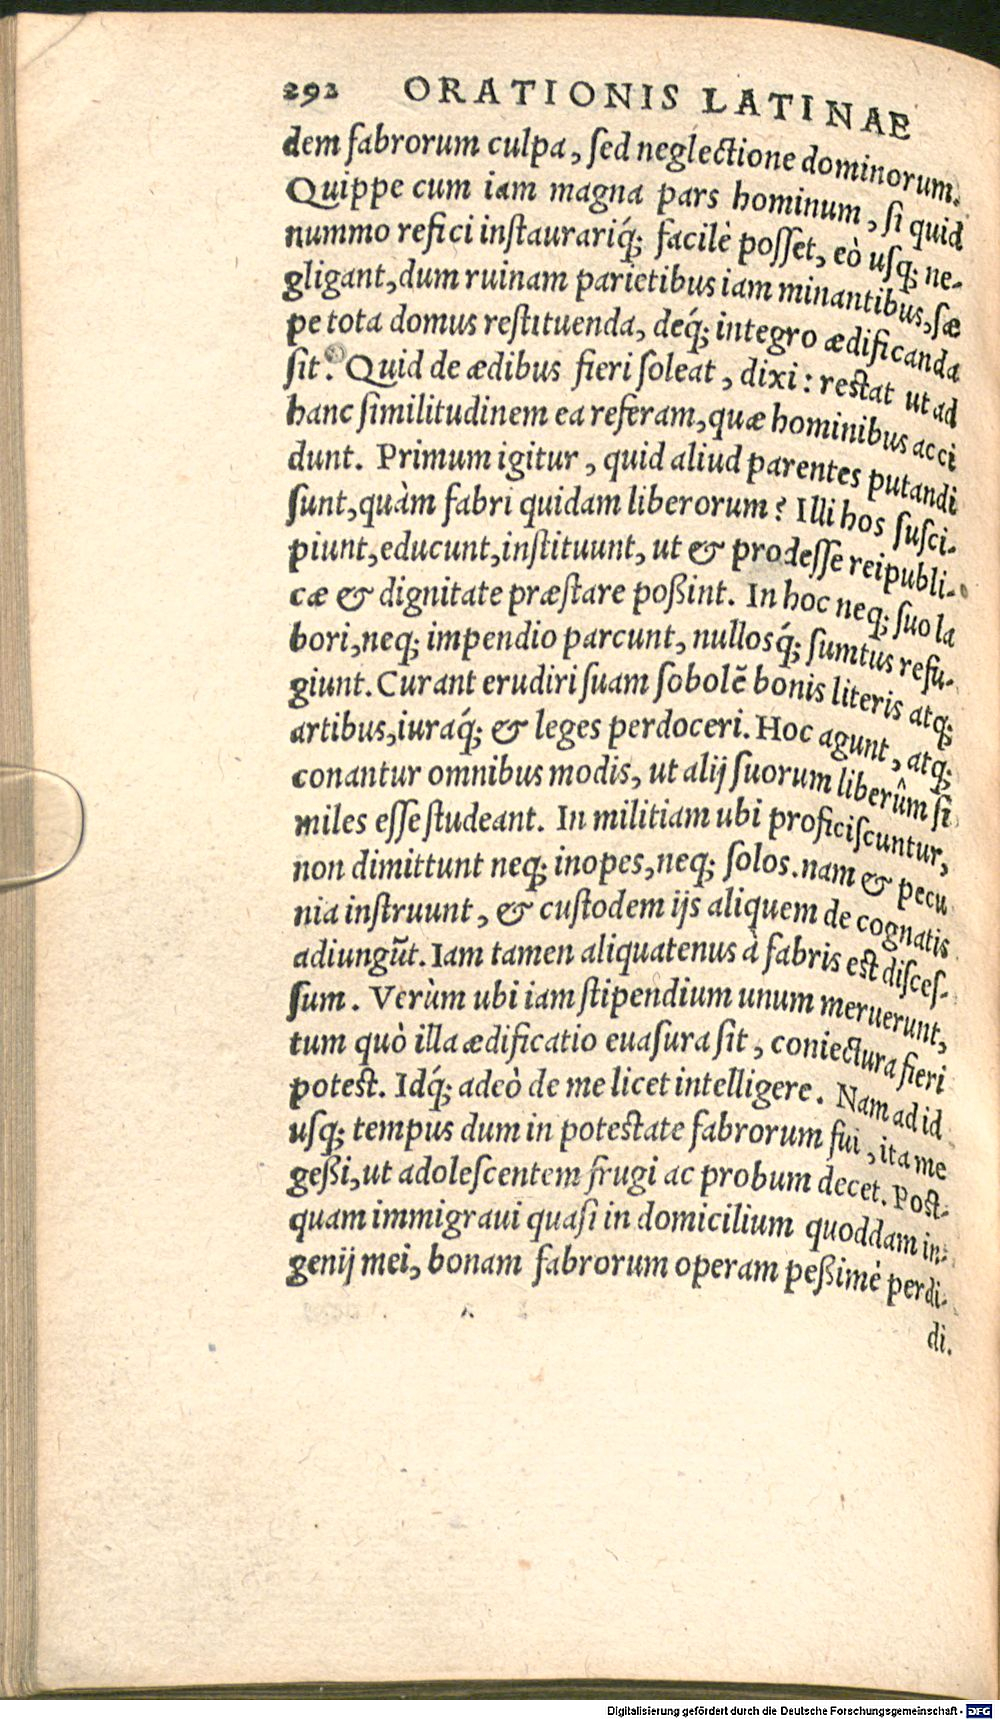 292 ORATIONIS LATINAE
dem fabrorum culpa, ſed neglectione dominorum.
Quippe cum iam magna pars hominum, ſi quid
nummo refici inſtaurariq́; facilè poſſet, eò uſq; ne-
gligant, dum ruinam parietibus iam minantibus, ſæ
pe tota domus reſtituenda, deq́; integro ædificanda
ſit. Quid de ædibus fieri ſoleat, dixi: reſtat ut ad
hanc ſimilitudinem ea referam, quæ hominibus acci
dunt. Primum igitur, quid aliud parentes putandi
ſunt, quàm fabri quidam liberorum? Illi hos ſuſci-
piunt, educunt, inſtituunt, ut & prodeſſe reipubli-
cæ & dignitate præſtare poßint. In hoc neq; ſuo la
bori, neq; impendio parcunt, nullosq́; ſumtus refu-
giunt. Curant erudiri ſuam ſobolẽ bonis literis atq;
artibus, iuraq́; & leges perdoceri. Hoc agunt, atq;
conantur omnibus modis, ut alij ſuorum liberûm ſi
miles eſſe ſtudeant. In militiam ubi proficiſcuntur,
non dimittunt neq; inopes, neq; ſolos. nam & pecu
nia inſtruunt, & cuſtodem ijs aliquem de cognatis
adiungũt. Iam tamen aliquatenus à fabris eſt diſceſ-
ſum. Verùm ubi iam ſtipendium unum meruerunt,
tum quò illa ædificatio euaſura ſit, coniectura fieri
poteſt. Idq́; adeò de me licet intelligere. Nam ad id
uſq; tempus dum in poteſtate fabrorum fui, ita me
geßi, ut adoleſcentem frugi ac probum decet. Poſt-
quam immigraui quaſi in domicilium quoddam in-
genij mei, bonam fabrorum operam peßimè perdi-
di.
Digitalisierung gefördert durch die Deutsche Forschungsgemeinschaft - DFG